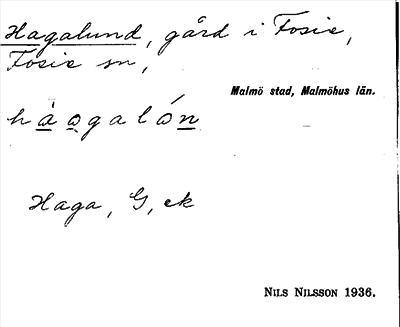 Hagalund, gård i Fosie,
Fosie sn,
Malmö stad, Malmöhus län.
hàọgalón
Haga, G, ek
Nils Nilsson 1936.